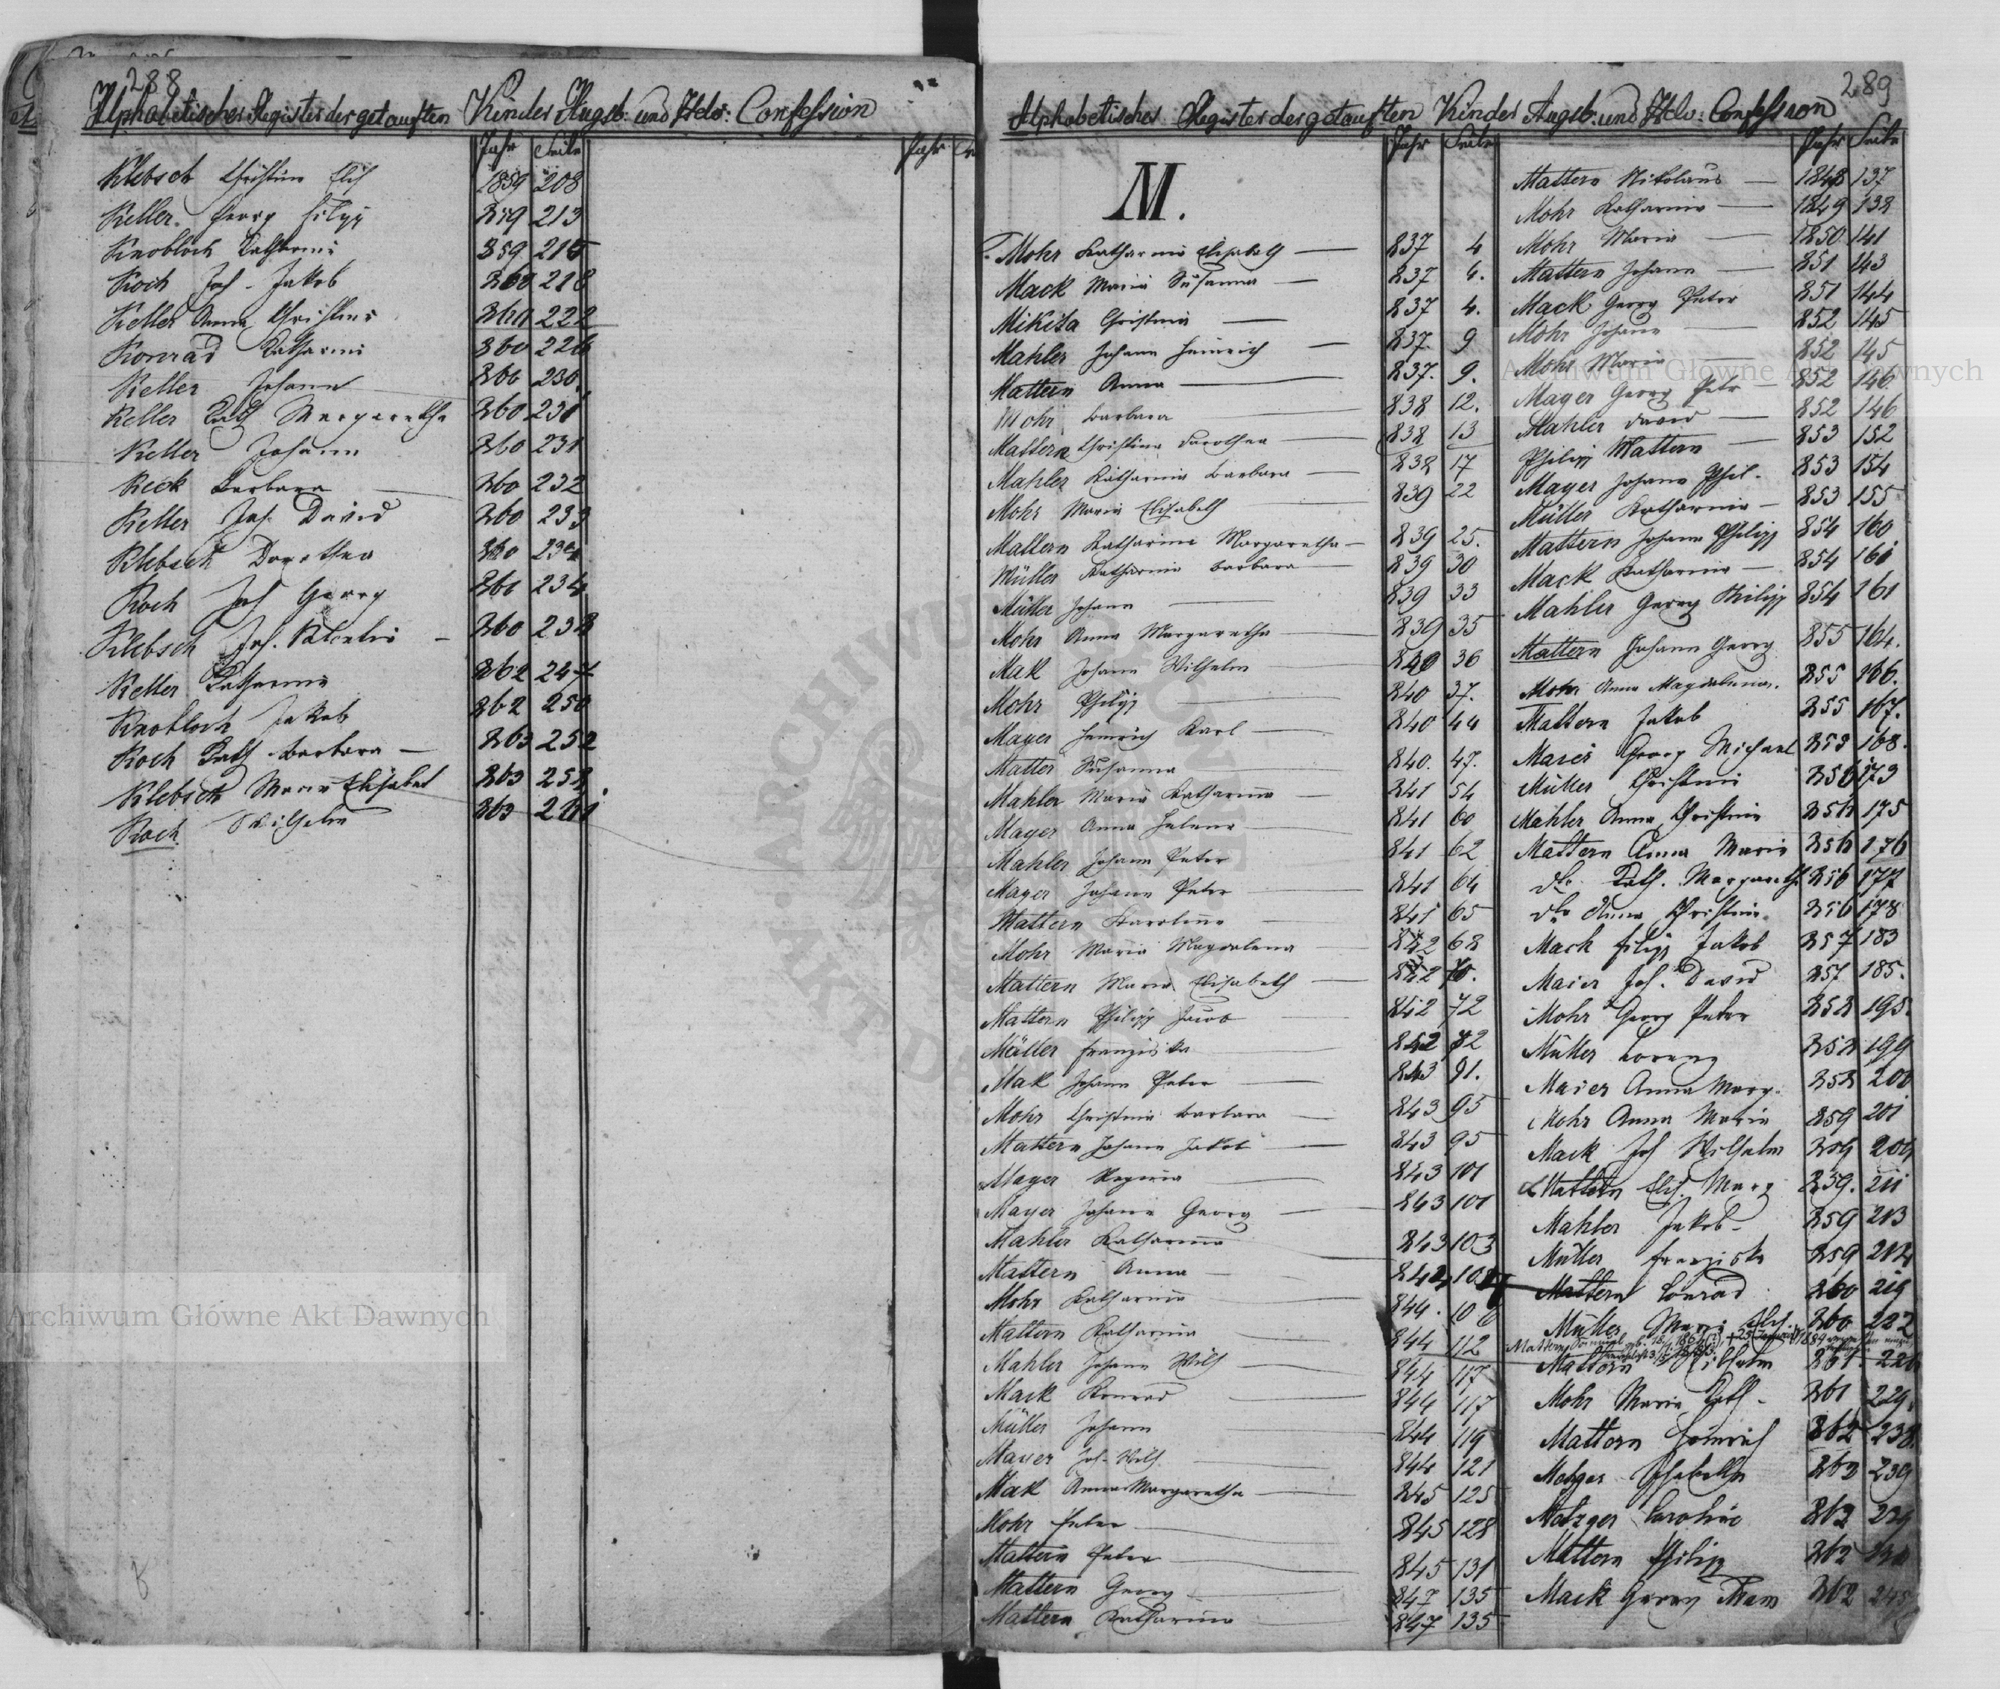 288
Alphabetisches Register der getauften Kinder Augsb: und Helv: Confession
Jahr Seite
Jahr
Klebsch Christine Elis 1859 208
Keller Georg Filipp 859 213
Knobloch Katharina 859 215
Koch Joh. Jakob 860 218
Keller Anna Christine 860 222
Konrad Katharina 860 226
Keller Johann 860 230.
Keller Kath Margaretha 860 231
Keller Johann 860 231
Keck Barbara 860 232
Keller Joh. David 860 233
Klebsch Dorothea 860 234
Koch Joh Georg 861 234
Klebsch Joh. 860 238
Keller Katharina 862 247
Knobloch Jakob 862 250
Koch Kath Barbara 863 252
Klebsch Maria Elisabet 863 258
Koch. Wilhelm 863 261
289
Alphabetisches Register der getauften Kinder Augsb: und Helv: Confession
Jahr Seite
M.
Mohr Katharina Elisabeth 837 4
Mack Maria Susanna 837 4.
Mikita Christina 837 4.
Mahler Johann Heinrich 837. 9
Mattern Anna 837. 9.
Mohr Barbara 838 12.
Mattern Christina Dorothea 838 13
Mahler Katharina Barbara 838 17
Mohr Maria Elisabeth 839 22
Mattern Katharina Margaretha 839 25.
Müller Katharina Barbara 839 30
Müller Johann 839 33
Mohr Anna Margaretha 839 35
Mak Johann Wilhelm 840 36
Mohr Philipp 840 37.
Mayer Heinrich Karl 840 44
Matter Susanna 840. 47.
Mahler Maria Katharina 841 54
Mayer Anna Helena 841 60
Mahler Johann Peter 841 62
Mayer Johann Peter 841 64
Mattern Karolina 841 65
Mohr Maria Magdalena 842 68
Mattern Maria Elisabeth 842 70.
Mattern Philipp Jacob 842 72
Müller Franziska 842 72
Mak Johann Peter 843 91.
Mohr Christina Barbara 843 95
Mattern Johann Jakob 843 95
Mayer Regina 843 101
Mayer Johann Georg 843 101
Mahler Katharina 843 103
Mattern Anna 844
Mohr Katharina 844. 106
Mattern Katharina 844 112
Mahler Johann Wilh 844 117
Mack Konrad 844 117
Müller Johann 844 119
Mayer Joh. Wilh. 844 121
Mak Anna Margaretha 845 125
Mohr Peter 845 128
Mattern Peter 845 131
Mattern Georg 847 135
Mattern Katharina 847 135
Jahr Seite
Mattern Nikolaus 1848 137
Mohr Katharina 1849 138
Mohr Maria 1850 141
Mattern Johann 851 143
Mack Georg Peter 851 144
Mohr Johann 852 145
Mohr Maria 852 145
Mayer Georg Petr 852 146
Mahler David 852 146
Philipp Mattern 853 152
Mayer Johann Phil. 853 154
Müller Katharina 853 155
Mattern Johann Philipp 854 160
Mack Katharina 854 161
Mahler Georg Philipp 854 161
Mattern Johann Georg 855 164.
Mohr Anna Magdalena. 855 166.
Mattern Jakob 855 167.
Maier Georg Michael 168.
Müller Christina 856 173
Mahler Anna Christina 856 175
Mattern Anna Maria 856 176
do Kath. Margareth 856 177
do Anna Christina 856 178
Mack Filipp Jakob 857 183
Maier Joh. David 857 185.
Mohr Georg Peter 858 195.
Müller Lorenz 858 199
Maier Anna Marg. 858 200
Mohr Anna Maria 859 201
Mack Joh Wilhelm 859 209
Mattern Elis. Marg 859. 211
Mahler Jakob 859 213
Müller Franziska 859 214
Mattern Conrad 860 219
Müller Maria Elis. 860 222
Mattern
Mattern Wilhelm 861 226
Mohr Maria Kath. 861 229.
Mattern Heinrich 862 238
Metzger Isabella 862 239
Metzger Caroline 862 239
Mattern Philipp 862
Mack Georg Adam 862 245
Archiwum Główne Akt Dawnych
Archiwum Główne Akt Dawnych